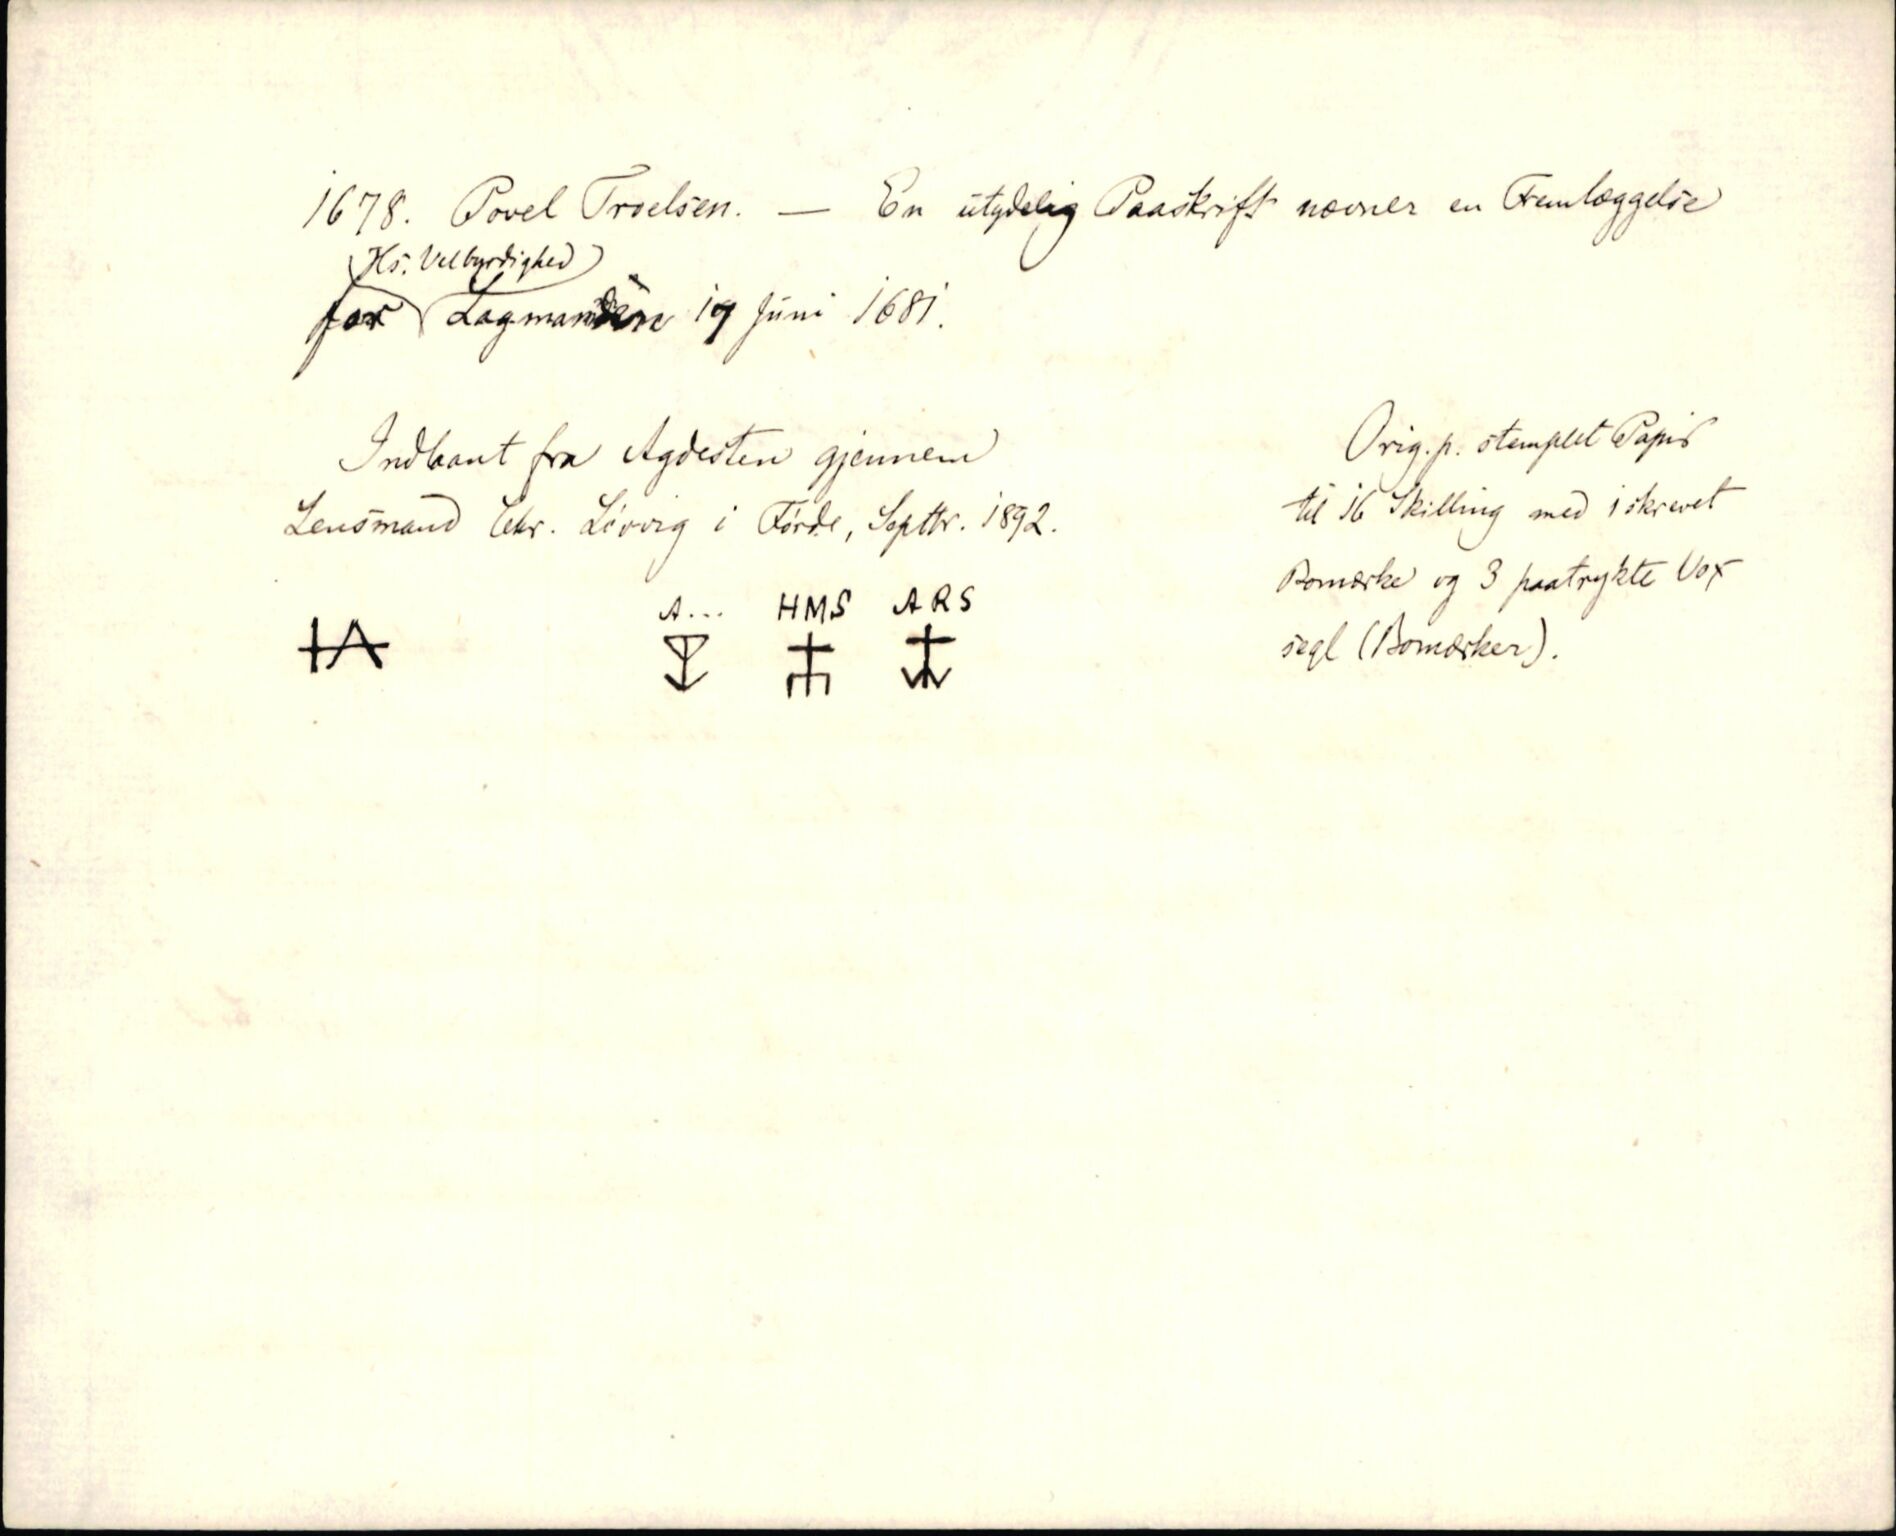 1678. Povel Troelsen. — En utydelig Paaskrift nævner en Fremlæggelse
Hs. Velbyrdighed
for Lagmanden 19 Juni 1681.
Indlaant fra Agdesten gjennem
Lensmand Chr. Lövvig i Förde, Septbr. 1892.
Orig. p. stemplet Papir
til 16 Skilling med iskrevet
Bomærke og 3 paatrykte Vox
segl (Bomærker).
A... HMS ARS